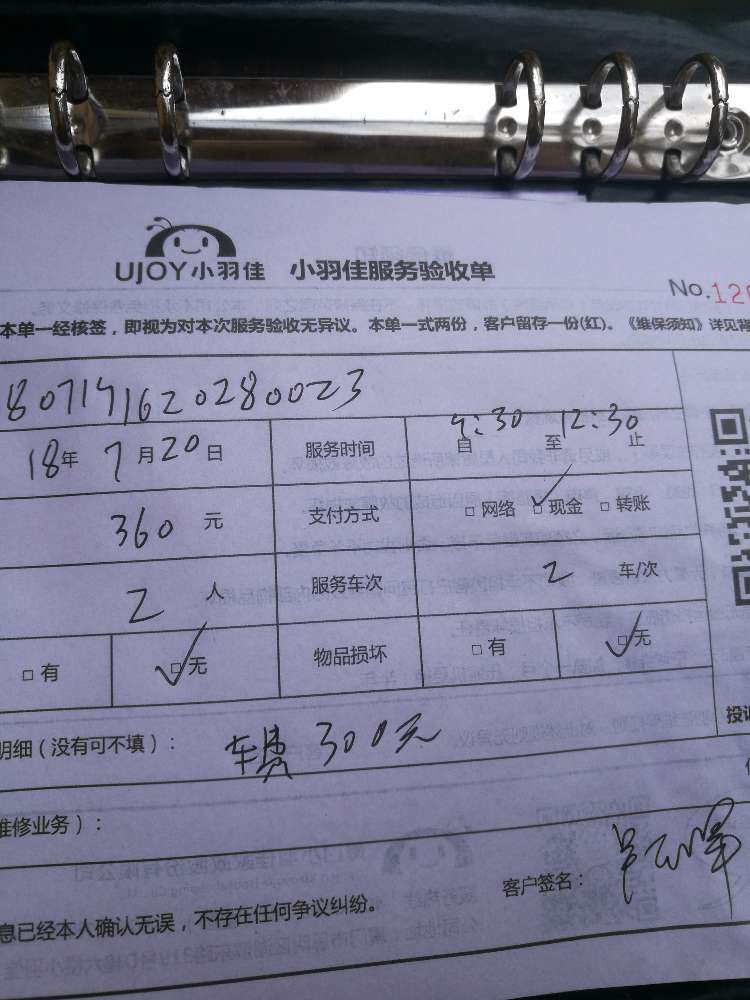 UJOY小羽佳 小羽佳服务验收单
No.120
本单一经核签，即视为对本次服务验收无异议。本单一式两份，客户留存一份(红)。《维保须知》详见背
807141620280023
18年 7月20日 服务时间 自9:30至12:30止
360元 支付方式 □网络 □现金 □转账
2人 服务车次 2车/次
□有 □无 物品损坏 □有 □无
投诉
明细（没有可不填）： 车费300元
维修业务）：
客户签名：
息已经本人确认无误，不存在任何争议纠纷。